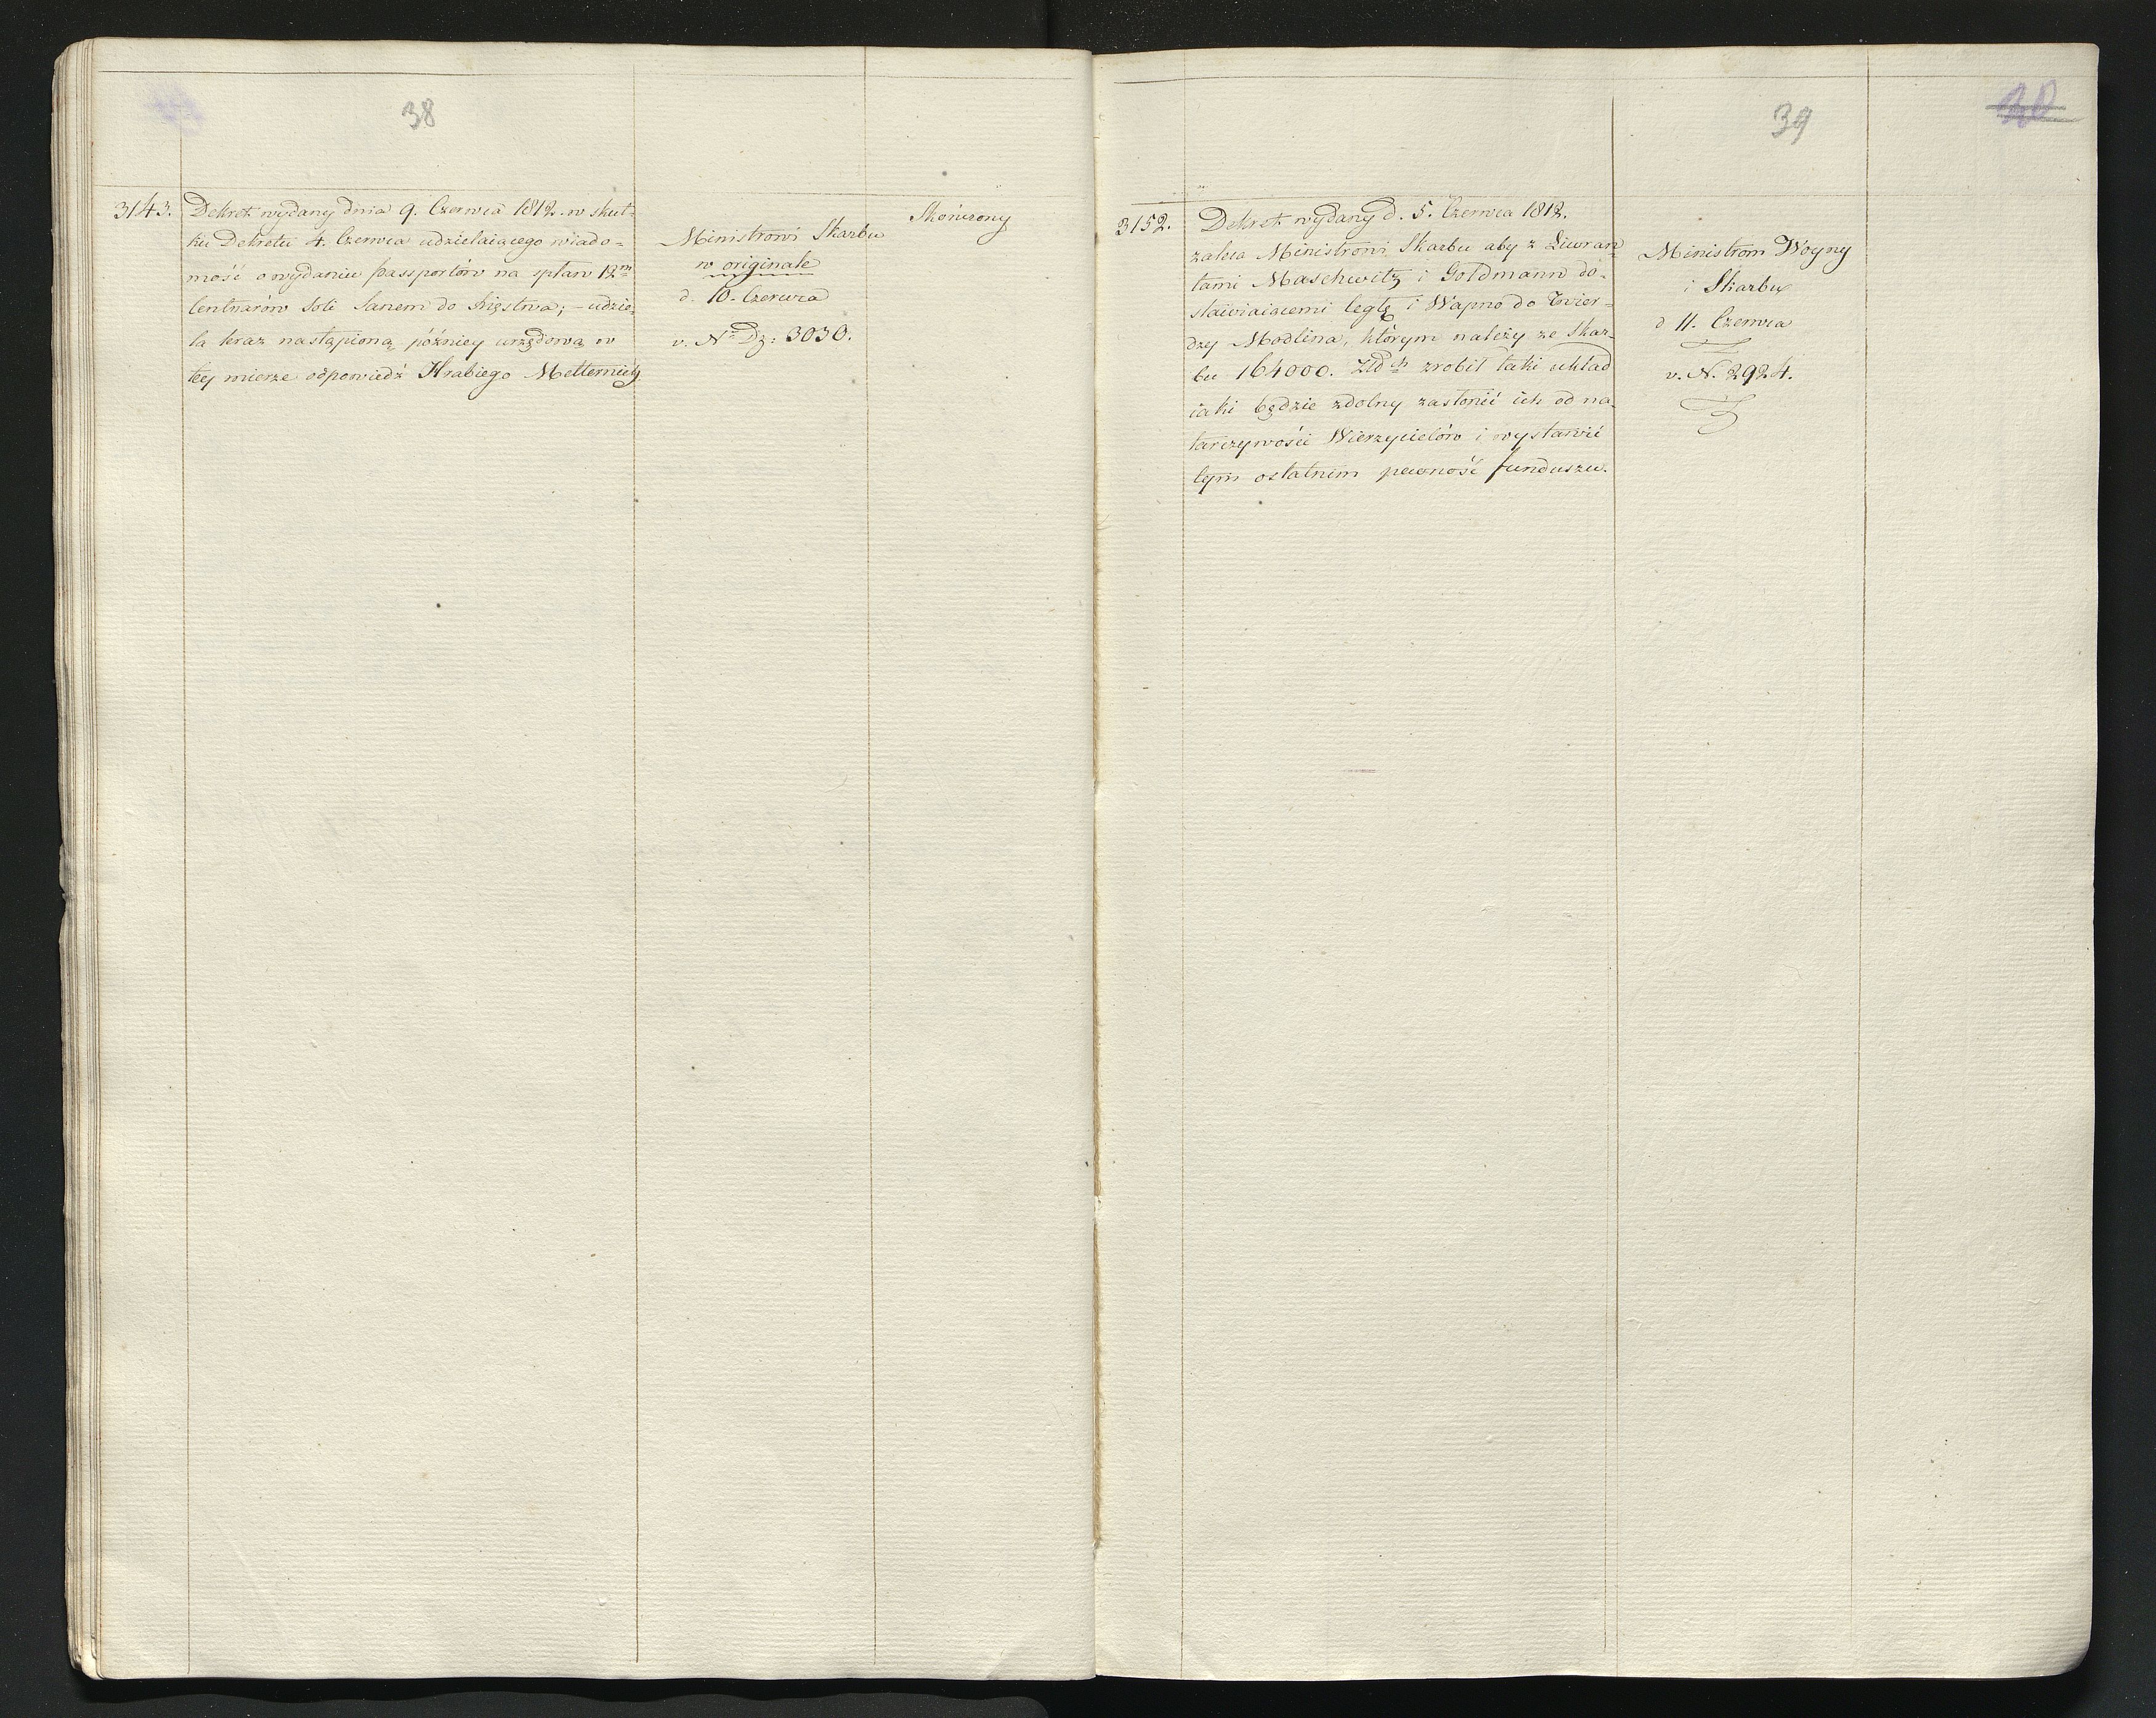 38
3143.
Dekret wydany dnia 9. Czerwca 1812. w skut-
ku Dekretu 4. Czerwca udzielaiącego wiado=
mość o wydaniu passportów na spław 12m
Centnarów Soli Sanem do Xięstwa; – udzie-
la teraz nastąpioną późniey urzędową w
tey mierze odpowiedź Hrabiego Metternich
Ministrowi Skarbu
w originale
d. 10. Czerwca
v. No Dz: 3030.
Skończony
39
3152.
Dekret wydany d. 5. Czerwca 1812.
zaleca Ministrowi Skarbu aby z Liwran=
tami Maschwitz i Goldmann do-
stawiaiącemi Cegłę i Wapno do Twier=
dzy Modlina, którym należy ze Skar-
bu 164000. Złdch zrobił taki układ
iaki będzie zdolny zasłonić ich od na-
tarczywości Wierzycielów i wystawić
tym ostatnim pewność funduszu.
Ministrom Woyny
i Skarbu
d 11. Czerwca
v. N. 2924.